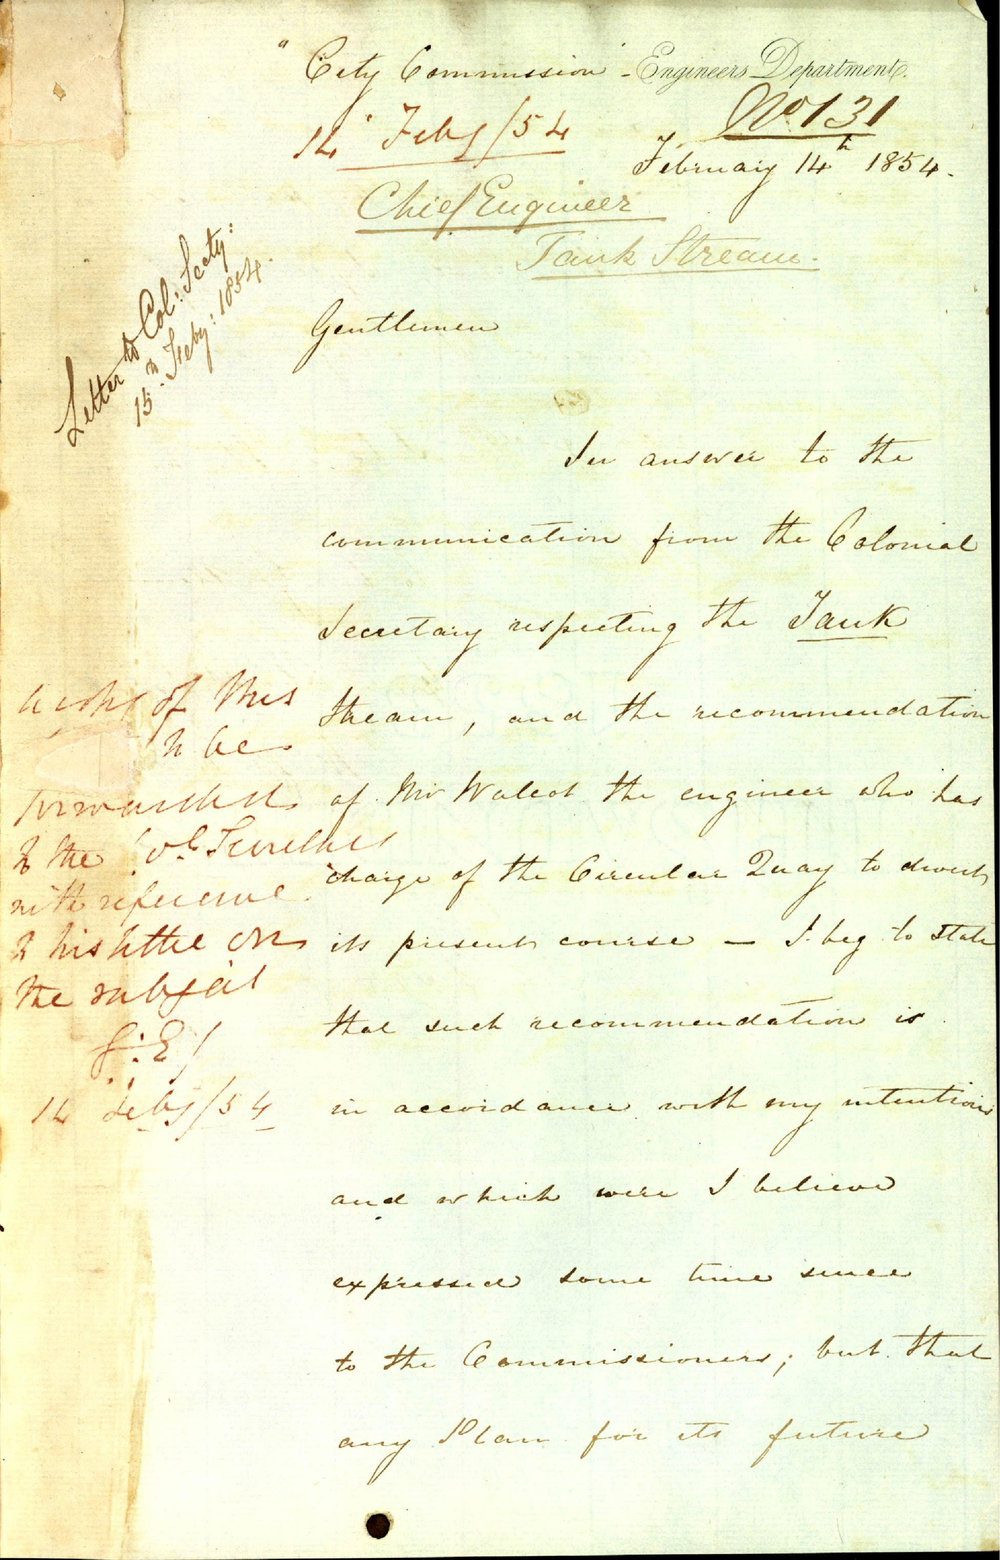 City Commission - Engineers Department.
No 131
14 Feby/54
February 14th 1854.
Chief Engineer
Tank Stream.
Letter to Col: Secty:
15th Feby: 1854.
Gentlemen
In answer to the
communication from the Colonial
Secretary respecting the Tank
Stream, and the recommendation
of Mr the engineer who has
charge of the Circular Quay to divert
its present course — I beg to state
that such recommendation is
in accordance with my intentions
and which were I believe
expressed some time since
to the Commissioners; but that
any Plan for its future
A copy of this
to be
forwarded
to the Col Secretary
with reference
to his letter on
the subject
G.E/
14 Feby/54